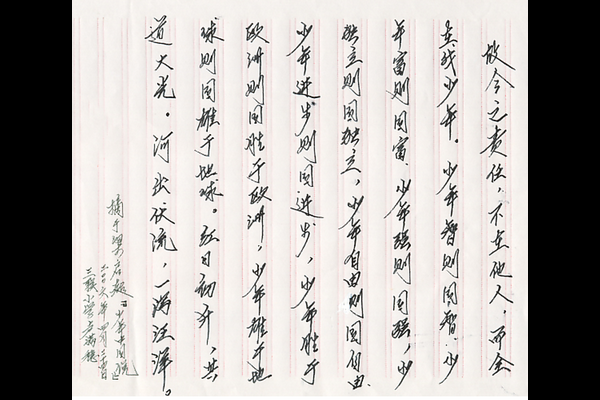 故今之责任，不在他人，而全
在我少年。少年智则国智，少
年富则国富，少年强则国强，少
年独立则国独立，少年自由则国自由，
少年进步则国进步，少年胜于
欧洲则国胜于欧洲，少年雄于地
球则国雄于地球。红日初升，其
道大光。河出伏流，一泻汪洋。
摘于梁启超《少年中国说》
二〇〇六年四月三十日
三联小学